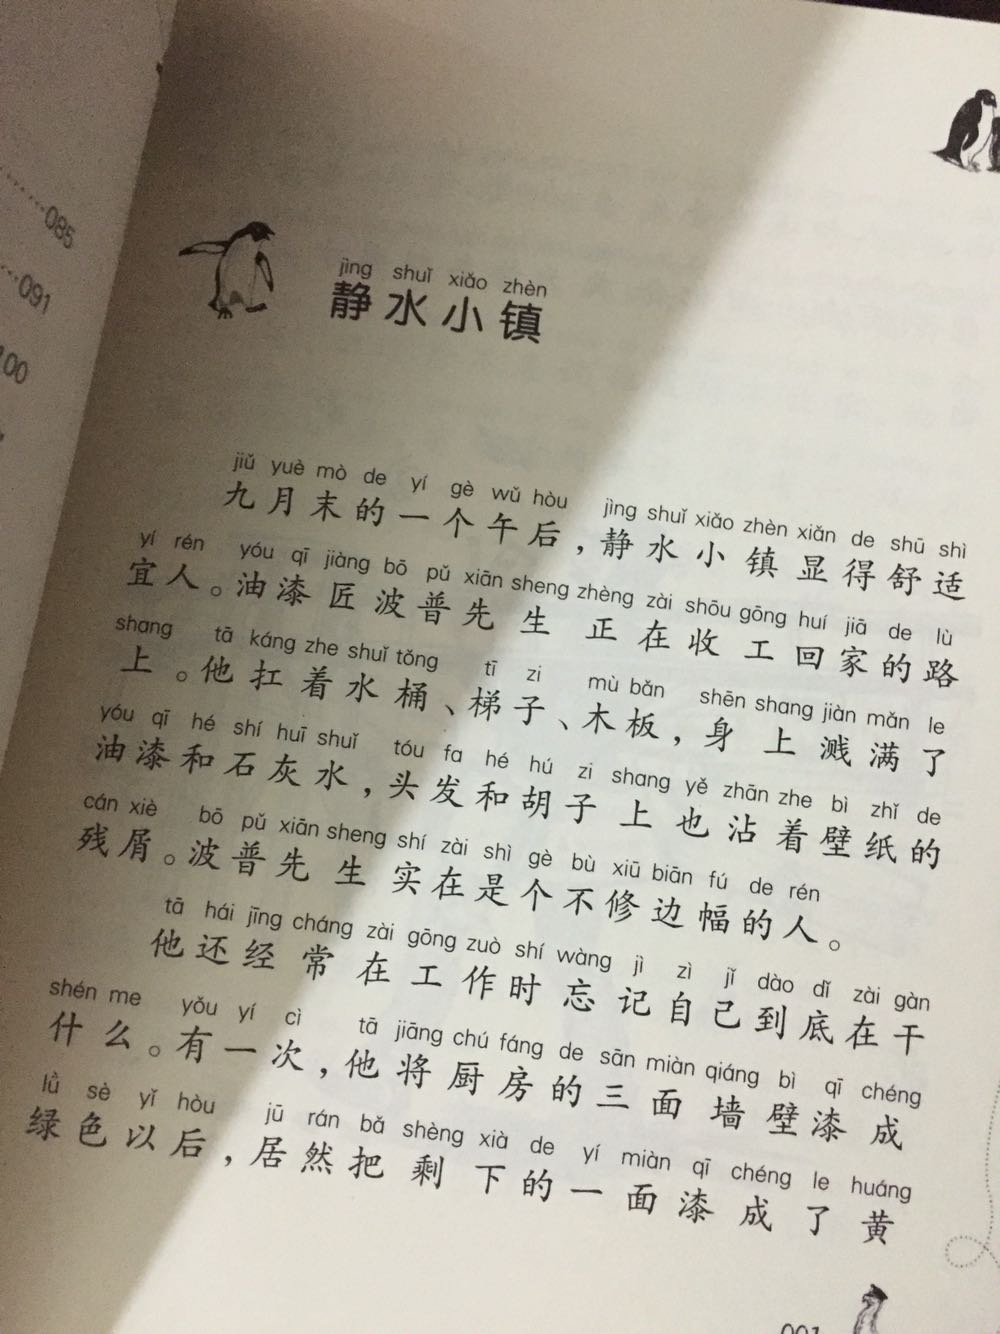 085
091
100
jìng shuǐ xiǎo zhèn
静水小镇
jiǔ yuè mò de yí gè wǔ hòu jìng shuǐ xiǎo zhèn xiǎn de shū shì
九月末的一个午后，静水小镇显得舒适
yí rén yóu qī jiàng bō pǔ xiān sheng zhèng zài shōu gōng huí jiā de lù
宜人。油漆匠波普先生正在收工回家的路
shang tā káng zhe shuǐ tǒng tī zi mù bǎn shēn shang jiàn mǎn le
上。他扛着水桶、梯子、木板，身上溅满了
yóu qī hé shí huī shuǐ tóu fa hé hú zi shang yě zhān zhe bì zhǐ de
油漆和石灰水，头发和胡子上也沾着壁纸的
cán xiè bō pǔ xiān sheng shí zài shì gè bù xiū biān fú de rén
残屑。波普先生实在是个不修边幅的人。
tā hái jīng cháng zài gōng zuò shí wàng jì zì jǐ dào dǐ zài gàn
他还经常在工作时忘记自己到底在干
shén me yǒu yí cì tā jiāng chú fáng de sān miàn qiáng bì qī chéng
什么。有一次，他将厨房的三面墙壁漆成
lǜ sè yǐ hòu jū rán bǎ shèng xià de yí miàn qī chéng le huáng
绿色以后，居然把剩下的一面漆成了黄
001